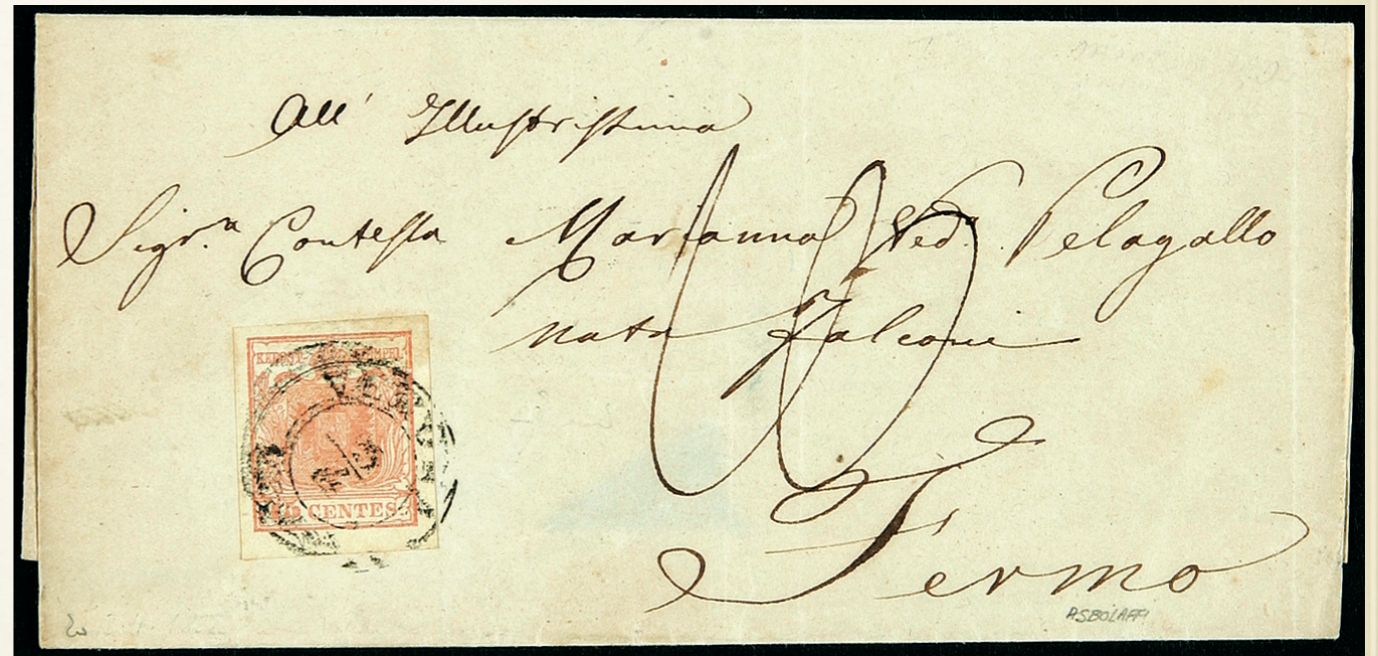 All' Illustrissima
Sigr.a Contessa Marianna Ved.a Pelagallo
nata Falconi
Fermo
KKPOST-STEMPEL
VERONA
15 CENTES
ASBOLAFFI